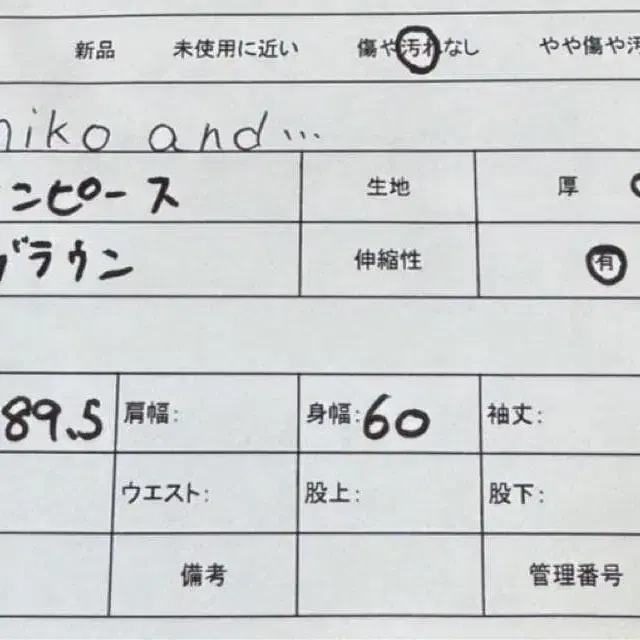 新品 未使用に近い 傷や汚れなし やや傷や汚
niko and ...
ンピース 生地 厚
ブラウン 伸縮性 有
89.5 肩幅: 身幅:60 袖丈:
ウエスト: 股上: 股下:
備考 管理番号